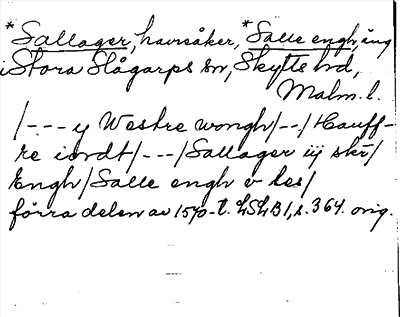 *Sallager, havreåker, *Salle engh, äng
i Stora Slågarps sn, Skytts hd,
Malm. l.
/--- y Westre wongh/--/Hauff-
re iordt/---/Sallager iij skr/
Engh/Salle engh v les/
förra delen av 1570-t. LSLB 1, s. 364. orig.